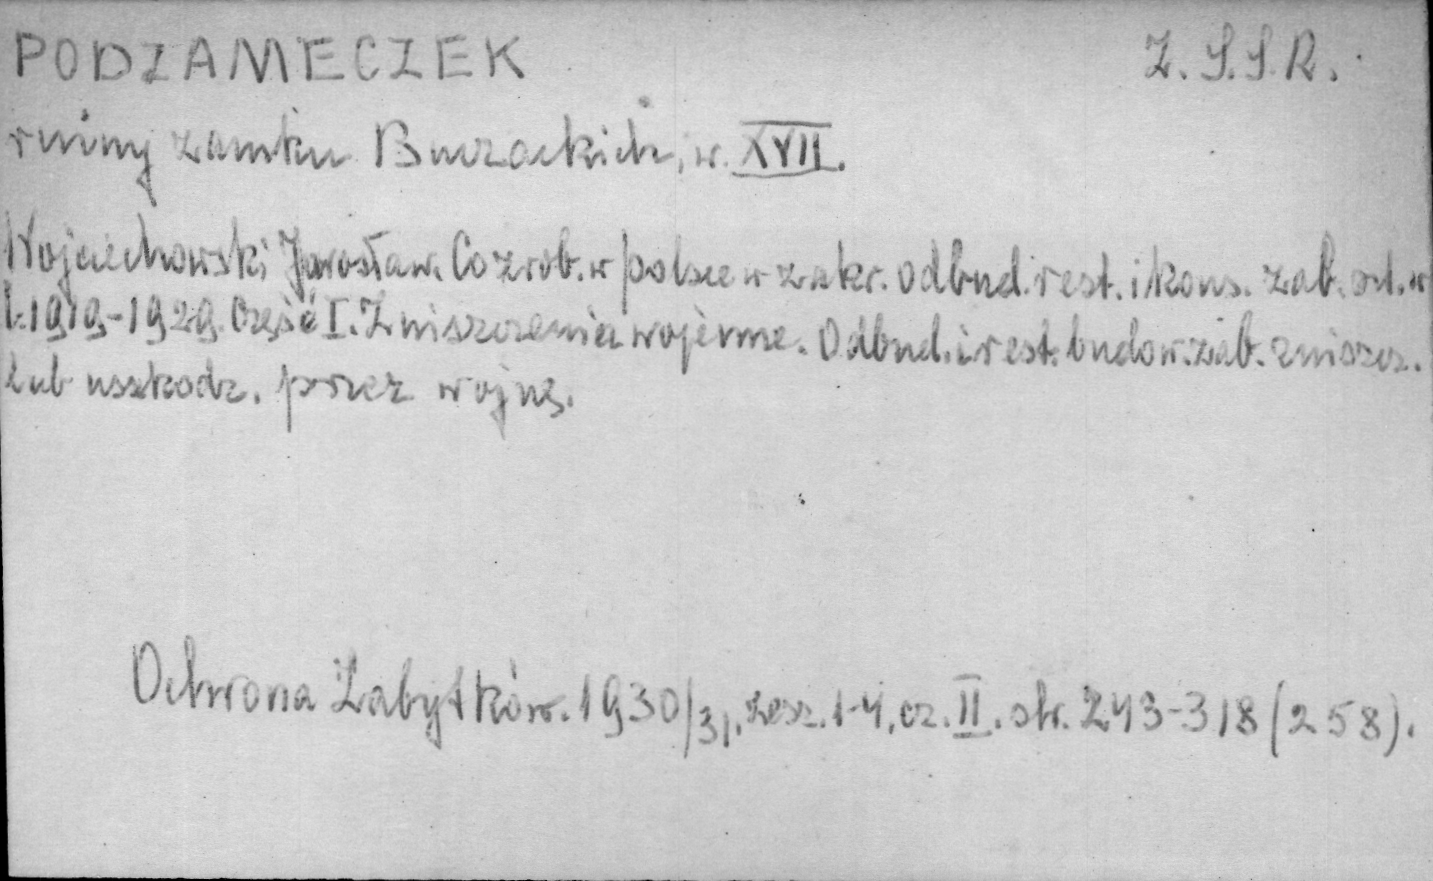 PODZAMECZEK Z.S.S.R.
ruiny zamku Buczackich, w. XVII.
Wojciechowski Jarosław. Co zrob. w Polsce w zakr. odbud. rest. i kons. zab. szt. w
l. 1919-1929. Część I. Zniszczenia wojenne. Odbud. i rest. budow. zab. zniszcz.
lub uszkodz. przez wojnę.
Ochrona Zabytków. 1930/31, zesz. 1-4, cz. II. str. 243-318 (258).